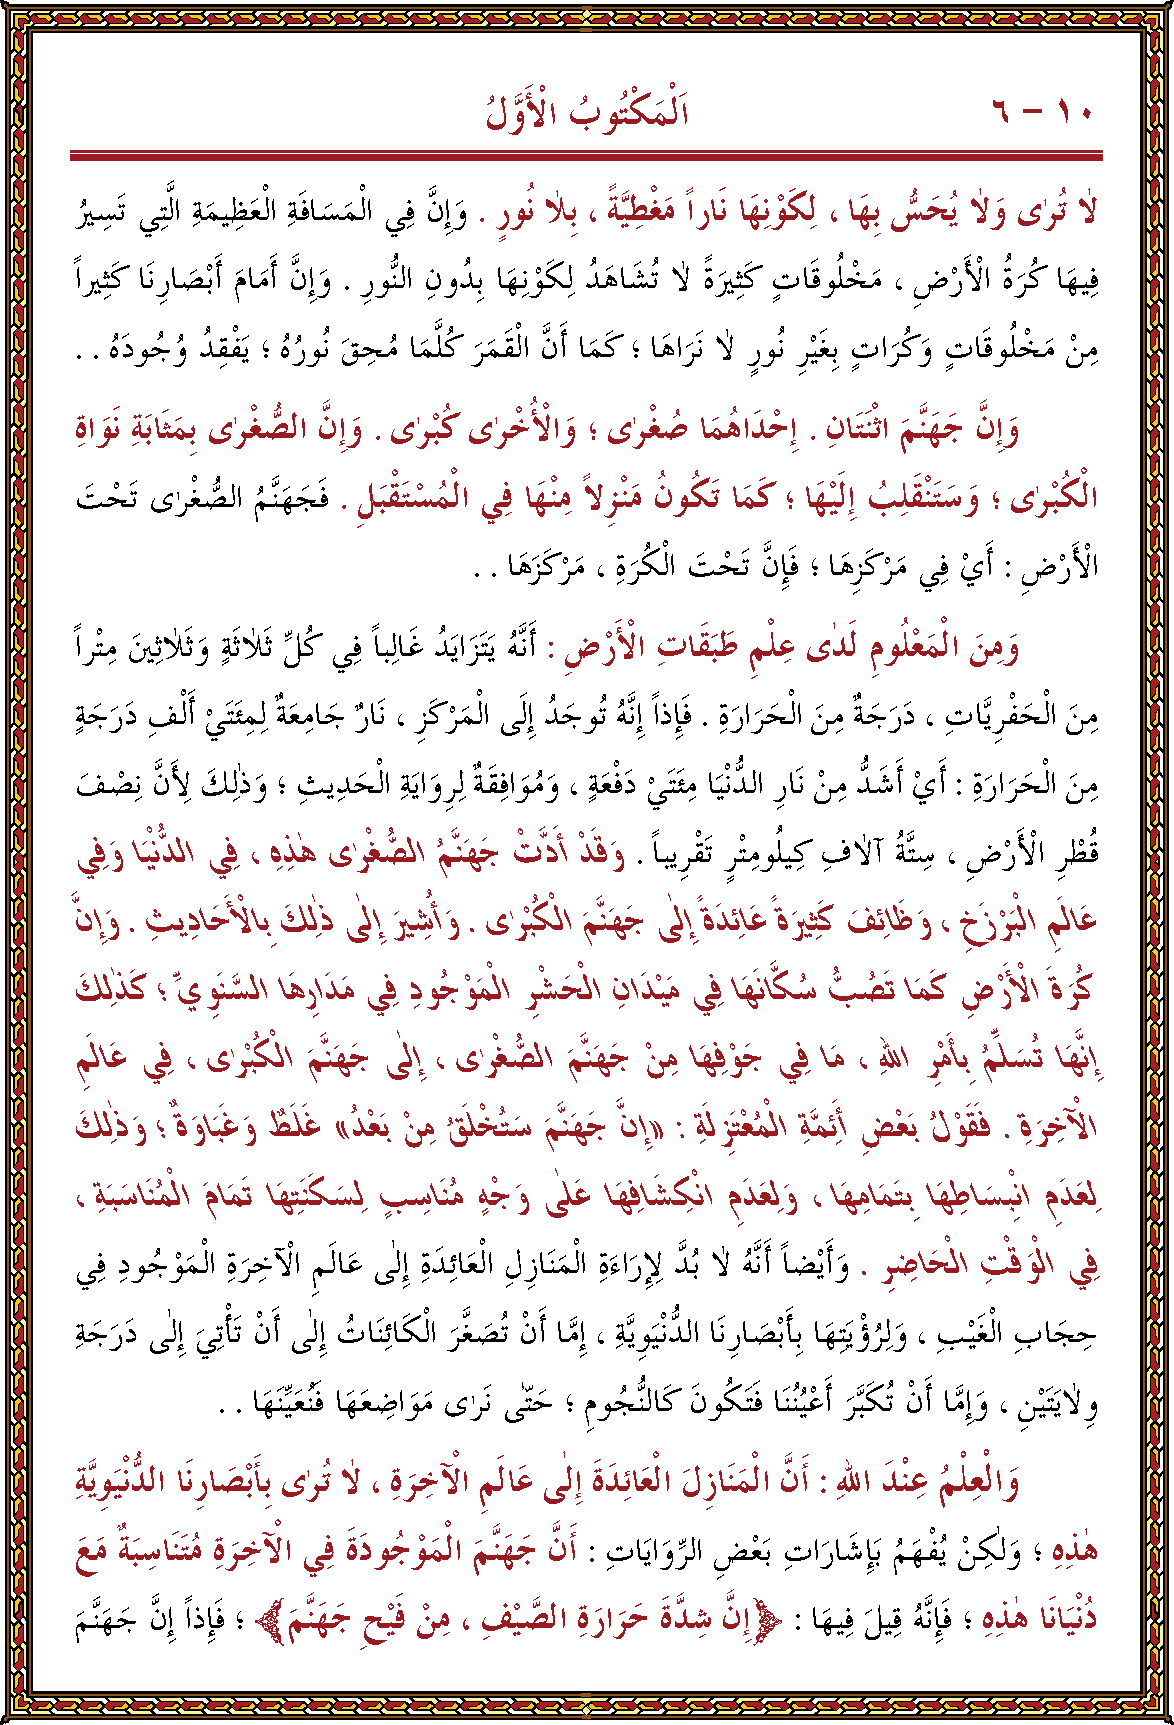 ١٠ – ٦ اَلْمَكْتُوبُ الْأَوَّلُ
لَا تُرٰى وَ لَا يُحَسُّ بِهَا ، لِكَوْنِهَا نَاراً مَغْطِيَّةً ، بِلَا نُورٍ . وَإِنَّ فِي الْمَسَافَةِ الْعَظِيمَةِ الَّتِي تَسِيرُ
فِيهَا كُرَةُ الْأَرْضِ ، مَخْلُوقَاتٍ كَثِيرَةً لَا تُشَاهَدُ لِكَوْنِهَا بِدُونِ النُّورِ . وَإِنَّ أَمَامَ أَبْصَارِنَا كَثِيراً
مِنْ مَخْلُوقَاتٍ وَكُرَاتٍ بِغَيْرِ نُورٍ لَا نَرَاهَا ؛ كَمَا أَنَّ الْقَمَرَ كُلَّمَا مُحِقَ نُورُهُ ؛ يَفْقِدُ وُجُودَهُ . .
وَإِنَّ جَهَنَّمَ اثْنَتَانِ . إِحْدَاهُمَا صُغْرٰى ؛ وَالْأُخْرٰى كُبْرٰى . وَإِنَّ الصُّغْرٰى بِمَثَابَةِ نَوَاةِ
الْكُبْرٰى ؛ وَسَتَنْقَلِبُ إِلَيْهَا ؛ كَمَا تَكُونُ مَنْزِلاً مِنْهَا فِي الْمُسْتَقْبَلِ . فَجَهَنَّمُ الصُّغْرٰى تَحْتَ
الْأَرْضِ : أَيْ فِي مَرْكَزِهَا ؛ فَإِنَّ تَحْتَ الْكُرَةِ ، مَرْكَزَهَا . .
وَمِنَ الْمَعْلُومِ لَدٰى عِلْمِ طَبَقَاتِ الْأَرْضِ : أَنَّهُ يَتَزَايَدُ غَالِباً فِي كُلِّ ثَلَاثَةٍ وَثَلَاثِينَ مِتْراً
مِنَ الْحَفْرِيَّاتِ ، دَرَجَةٌ مِنَ الْحَرَارَةِ . فَإِذاً إِنَّهُ تُوجَدُ إِلَى الْمَرْكَزِ ، نَارٌ جَامِعَةٌ لِمِئَتَيْ أَلْفِ دَرَجَةٍ
مِنَ الْحَرَارَةِ : أَيْ أَشَدُّ مِنْ نَارِ الدُّنْيَا مِئَتَيْ دَفْعَةٍ ، وَمُوَافِقَةٌ لِرِوَايَةِ الْحَدِيثِ ؛ وَذٰلِكَ لِأَنَّ نِصْفَ
قُطْرِ الْأَرْضِ ، سِتَّةُ آلَافِ كِيلُومِتْرٍ تَقْرِيباً . وَقَدْ أَدَّتْ جَهَنَّمُ الصُّغْرٰى هٰذِهِ ، فِي الدُّنْيَا وَفِي
عَالَمِ الْبَرْزَخِ ، وَظَائِفَ كَثِيرَةً عَائِدَةً إِلٰى جَهَنَّمَ الْكُبْرٰى . وَأُشِيرَ إِلٰى ذٰلِكَ بِالْأَحَادِيثِ . وَإِنَّ
كُرَةَ الْأَرْضِ كَمَا تَصُبُّ سُكَّانَهَا فِي مَيْدَانِ الْحَشْرِ الْمَوْجُودِ فِي مَدَارِهَا السَّنَوِيِّ ؛ كَذٰلِكَ
إِنَّهَا تُسَلِّمُ بِأَمْرِ اللهِ ، مَا فِي جَوْفِهَا مِنْ جَهَنَّمَ الصُّغْرٰى ، إِلٰى جَهَنَّمَ الْكُبْرٰى ، فِي عَالَمِ
الْآخِرَةِ . فَقَوْلُ بَعْضِ أَئِمَّةِ الْمُعْتَزِلَةِ : «إِنَّ جَهَنَّمَ سَتُخْلَقُ مِنْ بَعْدُ» غَلَطٌ وَغَبَاوَةٌ ؛ وَذٰلِكَ
لِعَدَمِ انْبِسَاطِهَا بِتَمَامِهَا ، وَلِعَدَمِ انْكِشَافِهَا عَلٰى وَجْهٍ مُنَاسِبٍ لِسَكَنَتِهَا تَمَامَ الْمُنَاسَبَةِ ،
فِي الْوَقْتِ الْحَاضِرِ . وَأَيْضاً أَنَّهُ لَا بُدَّ لِإِرَاءَةِ الْمَنَازِلِ الْعَائِدَةِ إِلٰى عَالَمِ الْآخِرَةِ الْمَوْجُودِ فِي
حِجَابِ الْغَيْبِ ، وَلِرُؤْيَتِهَا بِأَبْصَارِنَا الدُّنْيَوِيَّةِ ، إِمَّا أَنْ تُصَغَّرَ الْكَائِنَاتُ إِلٰى أَنْ تَأْتِيَ إِلٰى دَرَجَةِ
وِلَايَتَيْنِ ، وَإِمَّا أَنْ تُكَبَّرَ أَعْيُنُنَا فَتَكُونَ كَالنُّجُومِ ؛ حَتّٰى نَرٰى مَوَاضِعَهَا فَنُعَيِّنَهَا . .
وَالْعِلْمُ عِنْدَ اللهِ : أَنَّ الْمَنَازِلَ الْعَائِدَةَ إِلٰى عَالَمِ الْآخِرَةِ ، لَا تُرٰى بِأَبْصَارِنَا الدُّنْيَوِيَّةِ
هٰذِهِ ؛ وَلٰكِنْ يُفْهَمُ بِإِشَارَاتِ بَعْضِ الرِّوَايَاتِ : أَنَّ جَهَنَّمَ الْمَوْجُودَةَ فِي الْآخِرَةِ مُتَنَاسِبَةٌ مَعَ
دُنْيَانَا هٰذِهِ ؛ فَإِنَّهُ قِيلَ فِيهَا : ﴿إِنَّ شِدَّةَ حَرَارَةِ الصَّيْفِ ، مِنْ فَيْحِ جَهَنَّمَ﴾ ؛ فَإِذاً إِنَّ جَهَنَّمَ